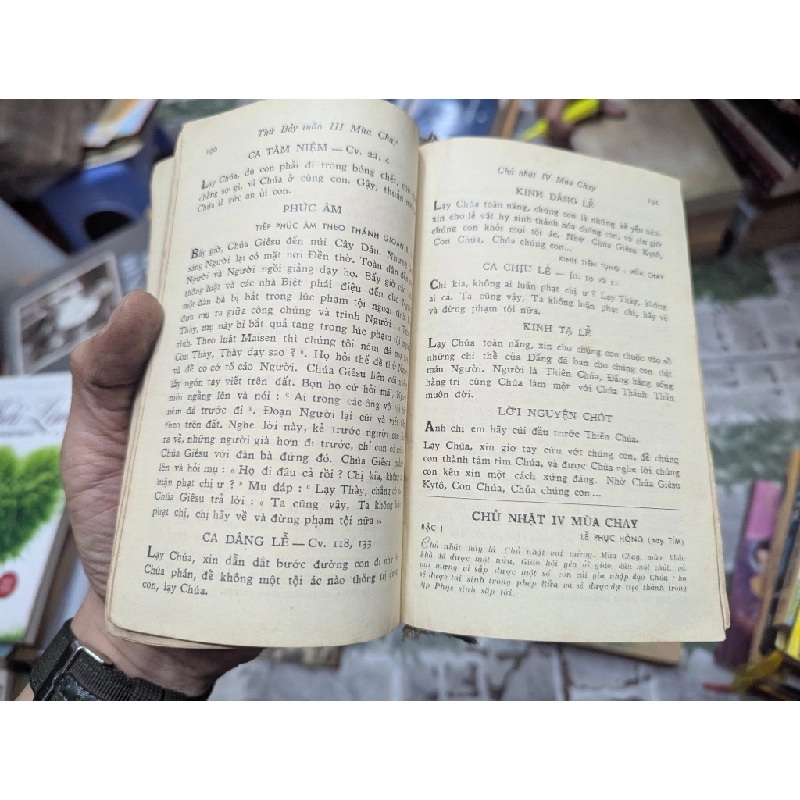 190
Thứ Bảy tuần III Mùa Chay
CA TÂM NIỆM — Cv. 22, 4
Lạy Chúa, dù con phải đi trong bóng chết, con
chẳng sợ gì, vì Chúa ở cùng con. Gậy, thuẫn
Chúa là sức an ủi con.
PHÚC ÂM
TIẾP PHÚC ÂM THEO THÁNH GIOAN 8
Bấy giờ, Chúa Giêsu đến núi Cây Dầu. Nhưng
sáng Người lại có mặt nơi Đền thờ. Toàn dân đến
Người và Người ngồi giảng dạy họ. Bấy giờ các
thông luật và các nhà Biệt phái điệu đến cho Ngư
một đàn bà bị bắt trong lúc phạm tội ngoại tình
đưa mụ ra giữa công chúng và trình Người : « Th
Thầy, mụ này bị bắt quả tang trong lúc phạm tội ngoại
tình. Theo luật Maisen thì chúng tôi ném đá mụ
Còn Thầy, Thầy dạy sao ? ». Họ hỏi thế để thử Ng
và để có cớ tố cáo Người. Chúa Giêsu liền cúi
lấy ngón tay viết trên đất. Bọn họ cứ hỏi mãi, Người
mới ngẩng lên và nói : « Ai trong các ông vô tội
ném đá trước đi ». Đoạn Người lại cúi và viết
theo trên đất. Nghe lời này, kẻ trước người sau
ra về, những người già hơn đi trước, chỉ còn có
Chúa Giêsu với đàn bà đứng đó. Chúa Giêsu
lên và hỏi mụ : « Họ đi đâu cả rồi ? Chị kia, không
luận phạt chị ư ? » Mụ đáp : « Lạy Thầy, chẳng có
Chúa Giêsu trả lời : « Ta cũng vậy, Ta không
phạt chị, chị hãy về và đừng phạm tội nữa »
CA DÂNG LỄ — Cv. 118, 133
Lạy Chúa, xin dẫn dắt bước đường con đi như
Chúa phán, để không một tội ác nào thống trị được
con, lạy Chúa.
Chủ nhật IV Mùa Chay
191
KINH DÂNG LỄ
Lạy Chúa toàn năng, chúng con là những kẻ yếu hèn,
xin cho lễ vật hy sinh thánh hóa chúng con, và gìn giữ
chúng con khỏi mọi tội ác. Nhờ Chúa Giêsu Kytô,
Con Chúa, Chúa chúng con...
KINH TIỀN TỤNG : MÙA CHAY
CA CHỊU LỄ — Jo. 8, 10 và 11
Chị kia, không ai luận phạt chị ư ? Lạy Thầy, không
ai cả. Ta cũng vậy, Ta không luận phạt chị, hãy về
và đừng phạm tội nữa.
KINH TẠ LỄ
Lạy Chúa toàn năng, xin cho chúng con thuộc vào số
những chi thể của Đấng đã ban cho chúng con thịt
máu Người. Người là Thiên Chúa, Đấng hằng sống
hằng trị cùng Chúa làm một với Chúa Thánh Thần
muôn đời.
LỜI NGUYỆN CHÓT
Anh chị em hãy cúi đầu trước Thiên Chúa.
Lạy Chúa, xin giơ tay cứu vớt chúng con, để chúng
con thành tâm tìm Chúa, và được Chúa nghe lời chúng
con kêu xin một cách xứng đáng. Nhờ Chúa Giêsu
Kytô, Con Chúa, Chúa chúng con...
CHỦ NHẬT IV MÙA CHAY
BẬC I
LỄ PHỤC HỒNG (hay TÍM)
Chủ nhật này là Chủ nhật vui mừng. Mùa Chay, mùa khắc
khổ đã được một nửa, Giáo hội gần ít giáo dân một nhật, có
vui mừng vì sắp được một số con cái gia nhập đạo Chúa : họ
sẽ được tái sinh trong phép Rửa và sẽ được dự tiệc thánh trong
dịp Phục sinh sắp tới.